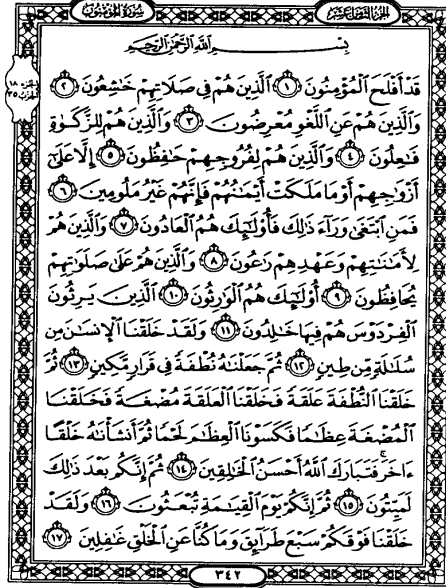 الجزء الثامن عشر
سورة المؤمنون
الجزء ١٨
بِسْمِ اللَّهِ الرَّحْمَٰنِ الرَّحِيمِ
قَدْ أَفْلَحَ الْمُؤْمِنُونَ ١ الَّذِينَ هُمْ فِي صَلَاتِهِمْ خَاشِعُونَ ٢
وَالَّذِينَ هُمْ عَنِ اللَّغْوِ مُعْرِضُونَ ٣ وَالَّذِينَ هُمْ لِلزَّكَوٰةِ
فَاعِلُونَ ٤ وَالَّذِينَ هُمْ لِفُرُوجِهِمْ حَافِظُونَ ٥ إِلَّا عَلَىٰ
أَزْوَاجِهِمْ أَوْ مَا مَلَكَتْ أَيْمَانُهُمْ فَإِنَّهُمْ غَيْرُ مَلُومِينَ ٦
فَمَنِ ابْتَغَىٰ وَرَاءَ ذَٰلِكَ فَأُولَٰئِكَ هُمُ الْعَادُونَ ٧ وَالَّذِينَ هُمْ
لِأَمَانَاتِهِمْ وَعَهْدِهِمْ رَاعُونَ ٨ وَالَّذِينَ هُمْ عَلَىٰ صَلَوَاتِهِمْ
يُحَافِظُونَ ٩ أُولَٰئِكَ هُمُ الْوَارِثُونَ ١٠ الَّذِينَ يَرِثُونَ
الْفِرْدَوْسَ هُمْ فِيهَا خَالِدُونَ ١١ وَلَقَدْ خَلَقْنَا الْإِنسَانَ مِن
سُلَالَةٍ مِّن طِينٍ ١٢ ثُمَّ جَعَلْنَاهُ نُطْفَةً فِي قَرَارٍ مَّكِينٍ ١٣ ثُمَّ
خَلَقْنَا النُّطْفَةَ عَلَقَةً فَخَلَقْنَا الْعَلَقَةَ مُضْغَةً فَخَلَقْنَا
الْمُضْغَةَ عِظَامًا فَكَسَوْنَا الْعِظَامَ لَحْمًا ثُمَّ أَنشَأْنَاهُ خَلْقًا
ءَاخَرَ ۚ فَتَبَارَكَ اللَّهُ أَحْسَنُ الْخَالِقِينَ ١٤ ثُمَّ إِنَّكُم بَعْدَ ذَٰلِكَ
لَمَيِّتُونَ ١٥ ثُمَّ إِنَّكُمْ يَوْمَ الْقِيَامَةِ تُبْعَثُونَ ١٦ وَلَقَدْ
خَلَقْنَا فَوْقَكُمْ سَبْعَ طَرَائِقَ وَمَا كُنَّا عَنِ الْخَلْقِ غَافِلِينَ ١٧
٣٤٢